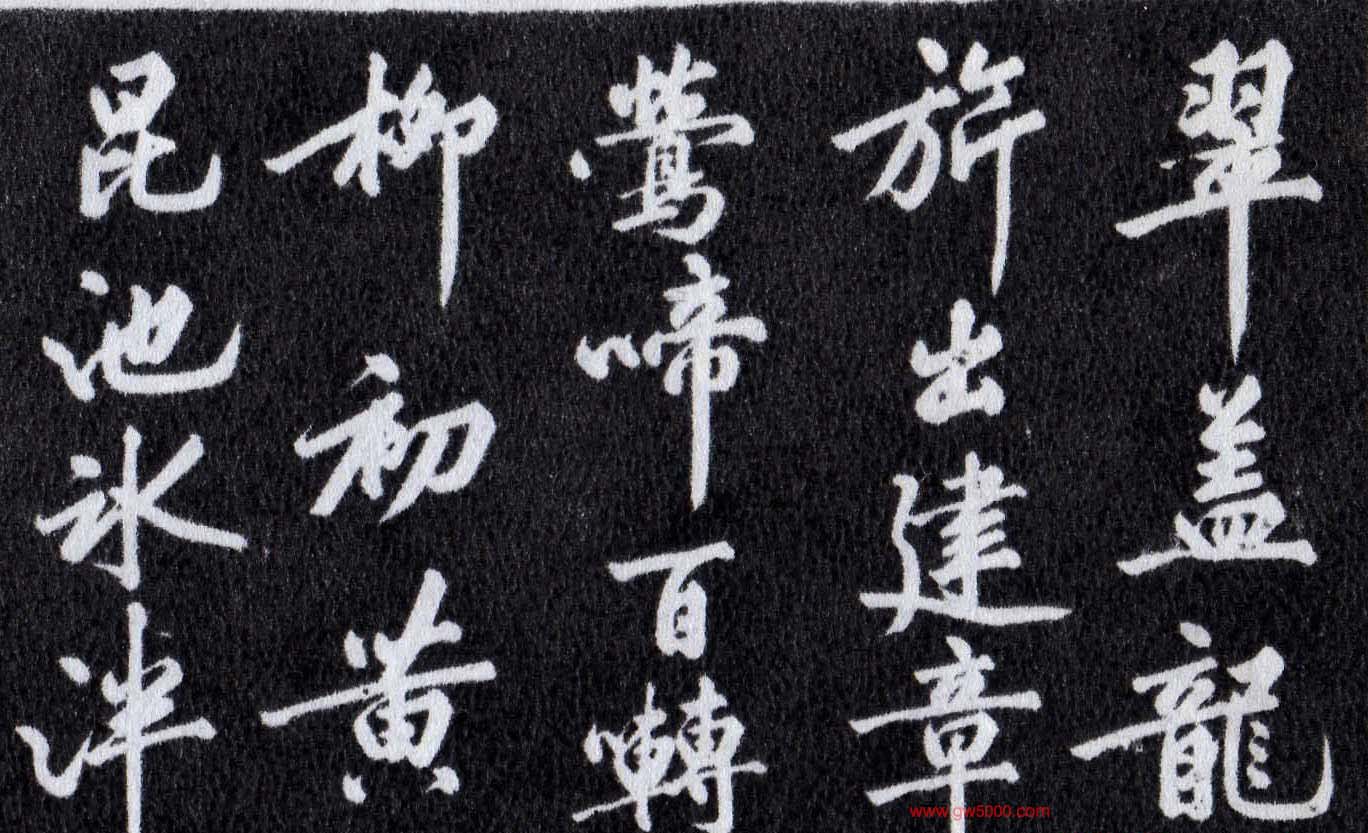 翠盖龍
旂出建章
鶯啼百囀
柳初黄
昆池氷泮
www.gw5000.com